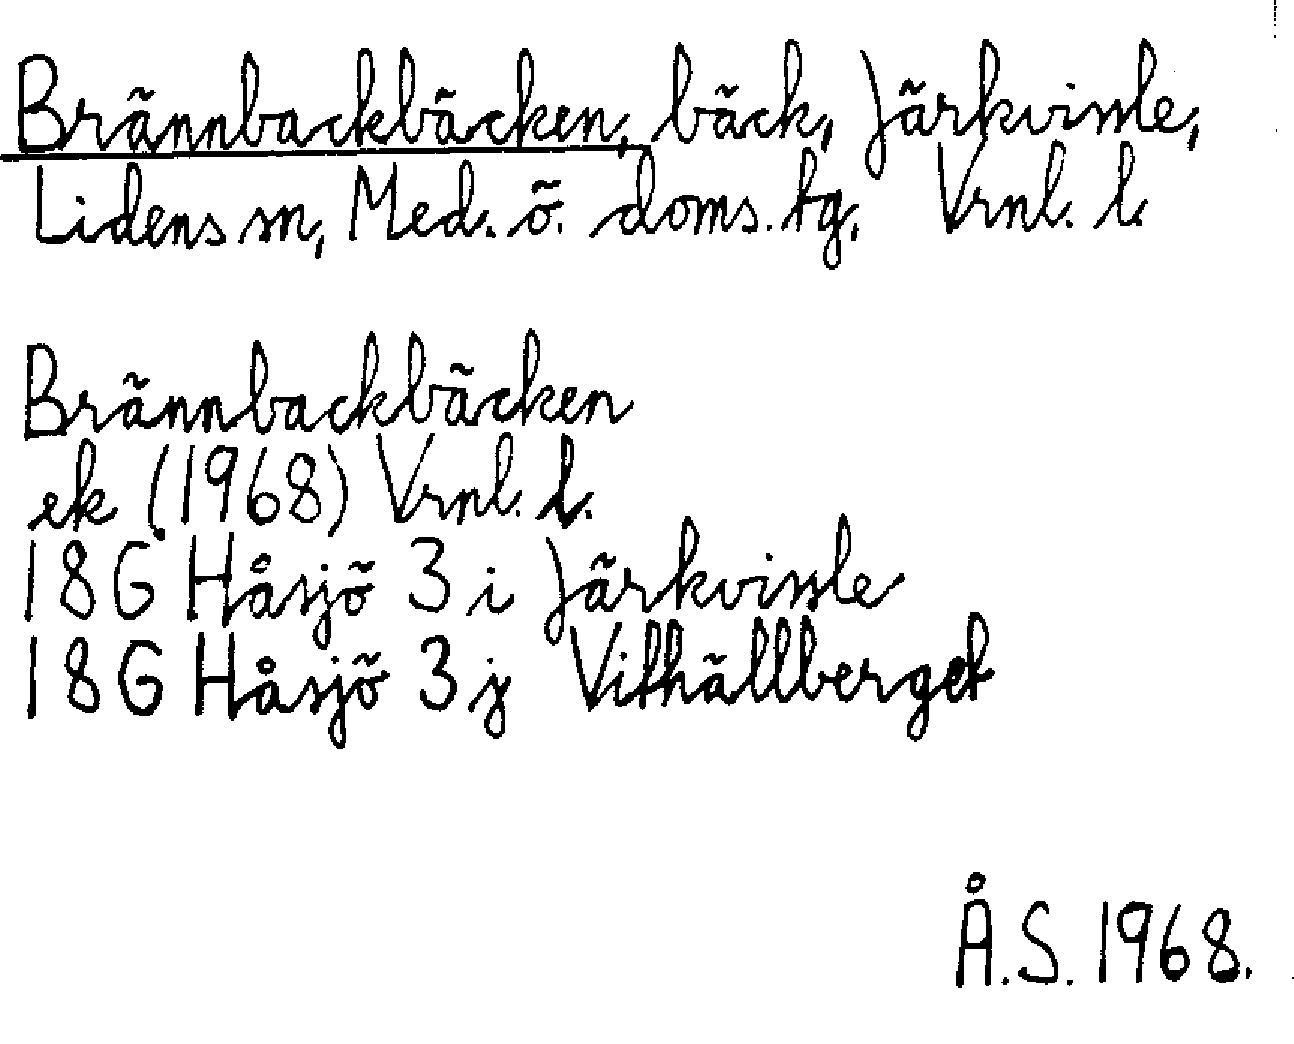 Brännbackbäcken, bäck, Järkvissle,
Lidens sn, Med. ö. doms. tg, Vrnl. l.
Brännbackbäcken
ek (1968) Vrnl. l.
18G Håsjö 3 i Järkvissle
18G Håsjö 3 j Vithällberget
Å.S. 1968.